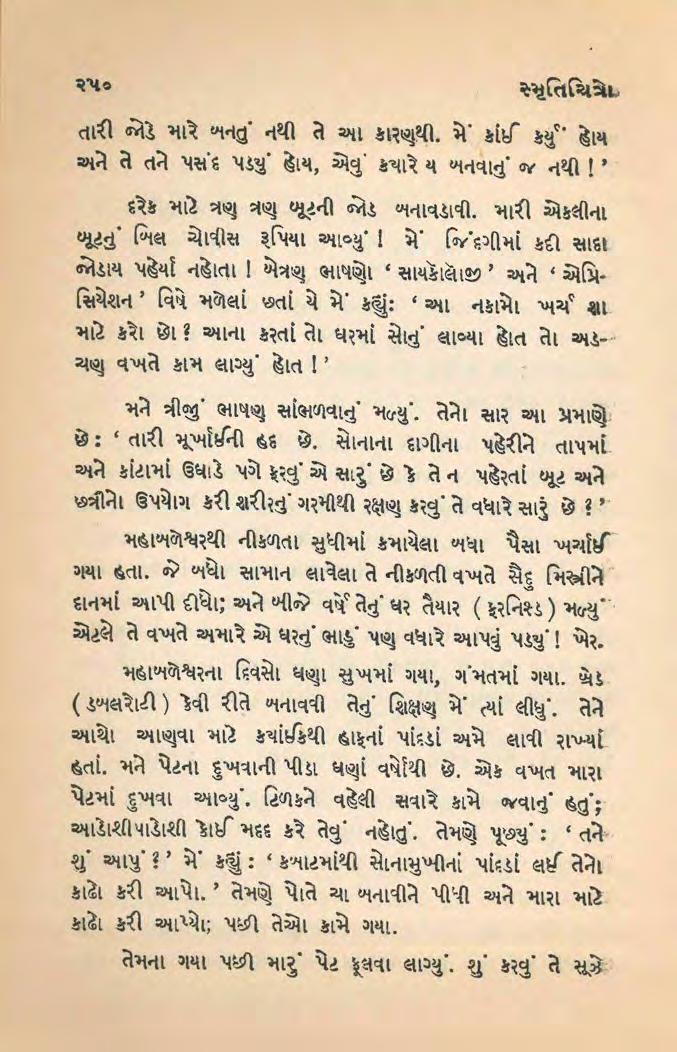 ૨૫૦ સ્મૃતિચિત્રો
તારી જોડે મારે બનતું નથી તે આ કારણથી. મેં કાંઈ કર્યું હોય
અને તે તને પસંદ પડયું હોય, એવું કયારે ય બનવાનું જ નથી ! ’
દરેક માટે ત્રણ ત્રણ બૂટની જોડ બનાવડાવી. મારી એકલીના
બૂટનું બિલ ચોવીસ રૂપિયા આવ્યું ! મેં જિંદગીમાં કદી સાદા
જોડાય પહેર્યાં નહોતા ! બેત્રણ ભાષણો ‘ સાયકૉલૉજી ’ અને ‘ એપ્રિ-
સિયેશન ’ વિષે મળેલાં છતાં યે મેં કહ્યું: ‘ આ નકામો ખર્ચ શા
માટે કરો છો ? આના કરતાં તો ઘરમાં સોનું લાવ્યા હોત તો અડ-
ચણ વખતે કામ લાગ્યું હોત ! ’
મને ત્રીજું ભાષણ સાંભળવાનું મળ્યું. તેનો સાર આ પ્રમાણે
છે : ‘ તારી મૂર્ખાઈની હદ છે. સોનાના દાગીના પહેરીને તાપમાં
અને કાંટામાં ઉઘાડે પગે ફરવું એ સારું છે કે તે ન પહેરતાં બૂટ અને
છત્રીનો ઉપયોગ કરી શરીરનું ગરમીથી રક્ષણ કરવું તે વધારે સારું છે ? ’
મહાબળેશ્વરથી નીકળતા સુધીમાં કમાયેલા બધા પૈસા ખર્ચાઈ
ગયા હતા. જે બધો સામાન લાવેલા તે નીકળતી વખતે સૈદુ મિસ્ત્રીને
દાનમાં આપી દીધો; અને બીજે વર્ષે તેનું ઘર તૈયાર ( ફરનિશ્ડ ) મળ્યું
એટલે તે વખતે અમારે એ ઘરનું ભાડું પણ વધારે આપવું પડયું ! ખેર.
મહાબળેશ્વરના દિવસો ઘણા સુખમાં ગયા, ગંમતમાં ગયા. બ્રેડ
( ડબલરોટી ) કેવી રીતે બનાવવી તેનું શિક્ષણ મેં ત્યાં લીધું. તેને
આથો આણવા માટે કયાંઈકથી હાફનાં પાંદડાં અમે લાવી રાખ્યાં
હતાં. મને પેટના દુખવાની પીડા ઘણાં વર્ષોથી છે. એક વખત મારા
પેટમાં દુખવા આવ્યું. ટિળકને વહેલી સવારે કામે જવાનું હતું;
આડોશીપાડોશી કોઈ મદદ કરે તેવું નહોતું. તેમણે પૂછયું : ‘ તને
શું આપું ? ’ મેં કહ્યું : ‘ કબાટમાંથી સોનામુખીનાં પાંદડાં લઈ તેનો
કાઢો કરી આપો. ’ તેમણે પોતે ચા બનાવીને પીધી અને મારા માટે
કાઢો કરી આપ્યો; પછી તેઓ કામે ગયા.
તેમના ગયા પછી મારું પેટ ફૂલવા લાગ્યું. શું કરવું તે સૂઝે